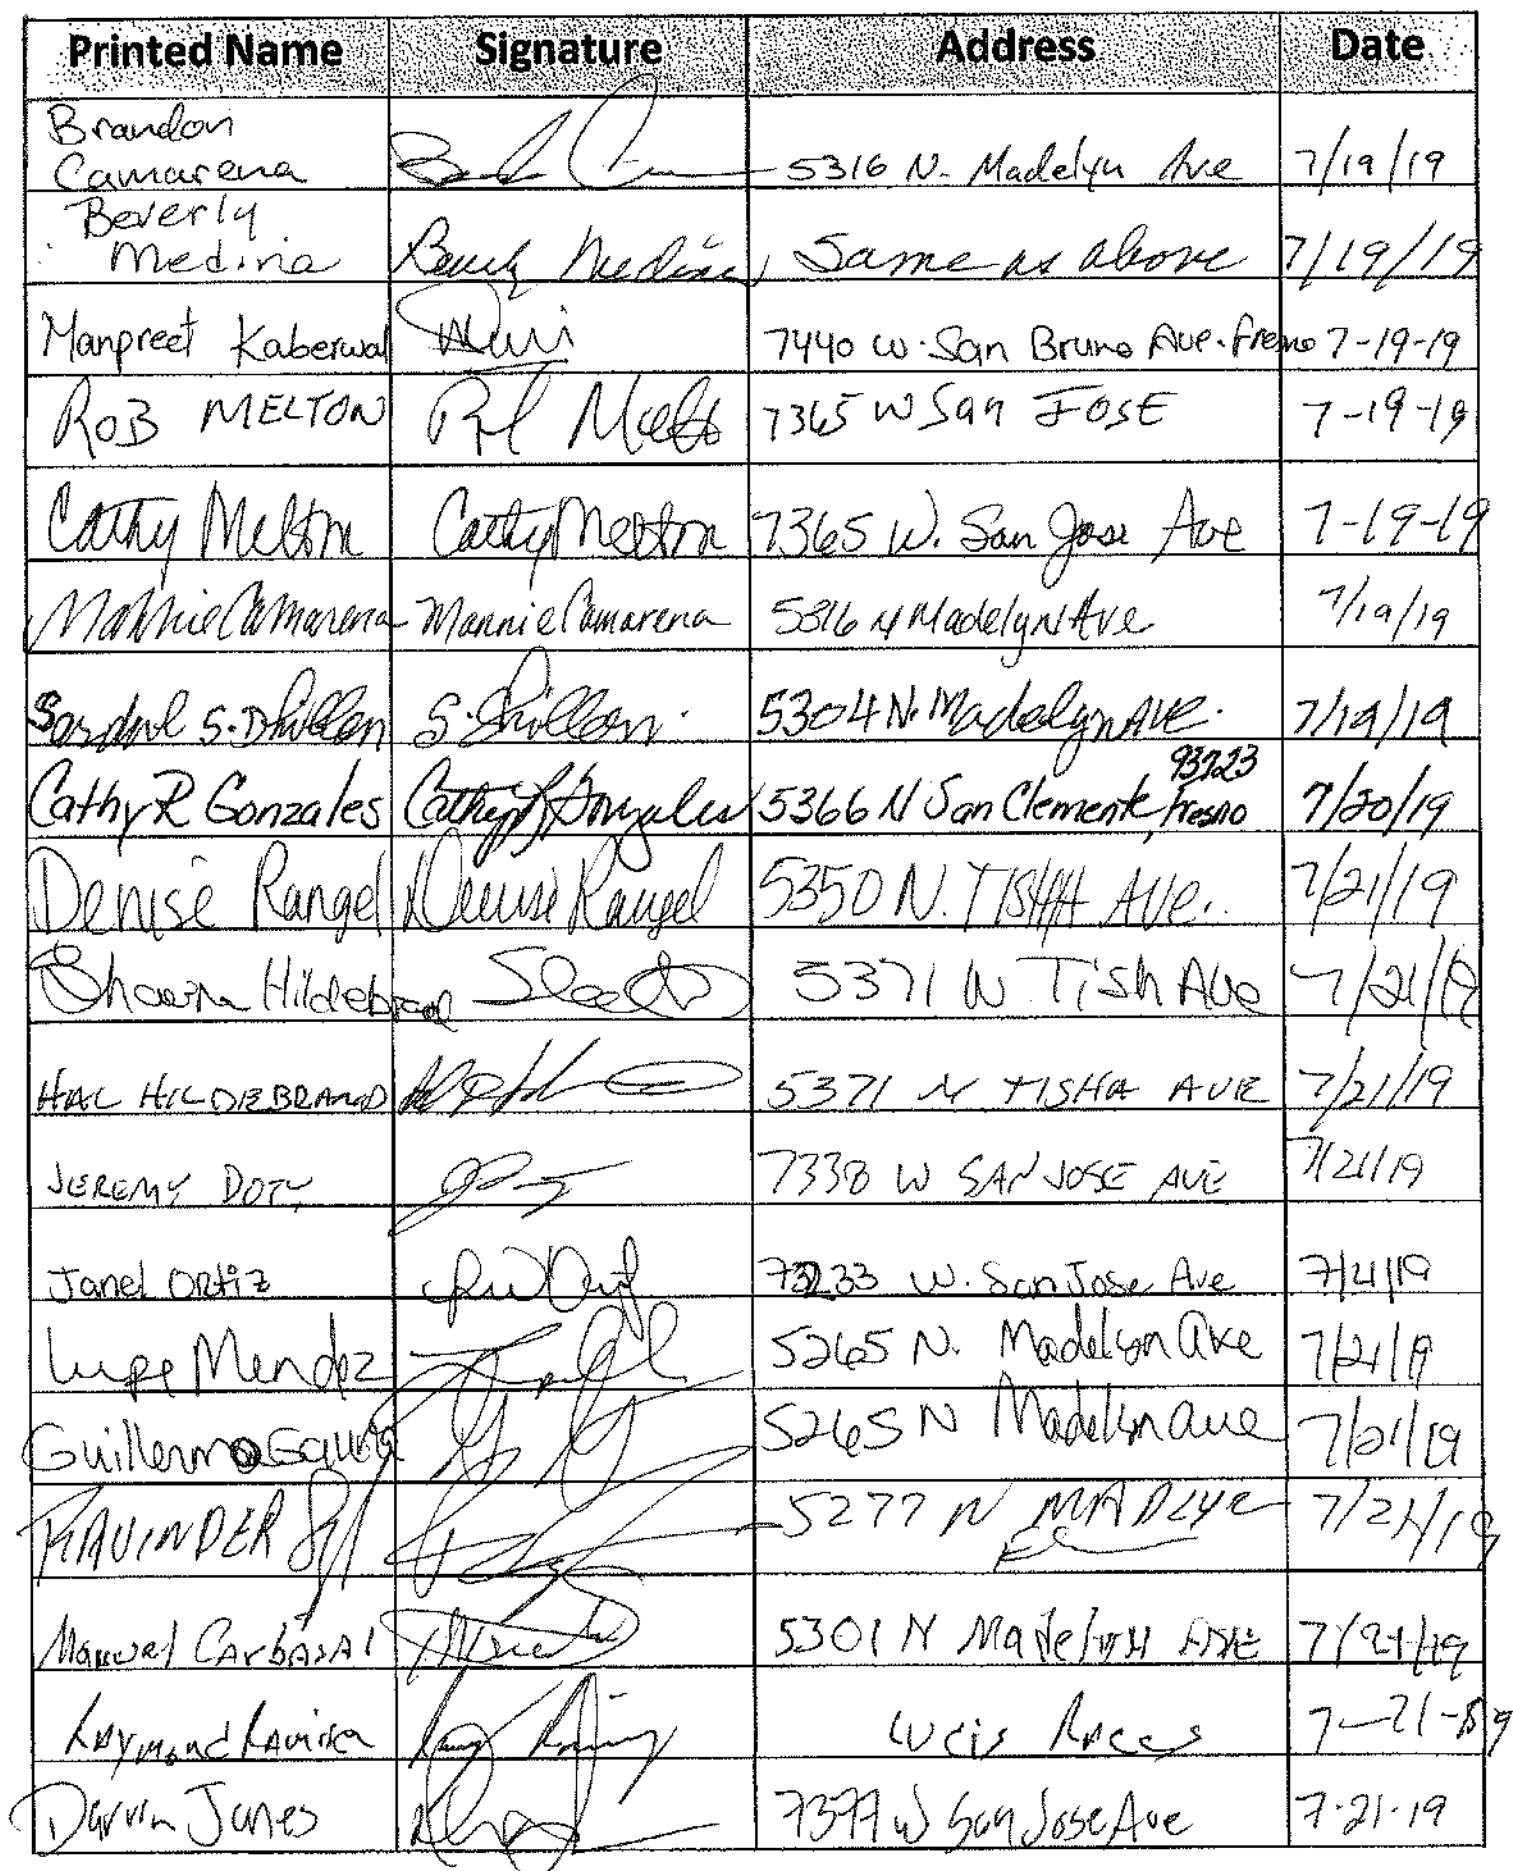 Printed Name Signature Address Date
Brandon
Camarena 5316 N. Madelyn Ave 7/19/19
Beverly
Medina Beverly Medina Same as above 7/19/19
Manpreet Kaberwal 7440 W. San Bruno Ave. Fresno 7-19-19
ROB MELTON 7365 W San JOSE 7-19-19
Cathy Melton Cathy Melton 7365 W. San Jose Ave 7-19-19
Mannie Camarena Mannie Camarena 5316 N Madelyn Ave 7/19/19
S. Dhillon S. Dhillon. 5304 N. Madelyn AVE. 7/19/19
93723
Cathy R Gonzales Cathy R Gonzales 5366 N San Clemente, Fresno 7/20/19
Denise Rangel Denise Rangel 5350 N. TISHA AVE. 7/21/19
Shawna Hildebrand 5371 N Tish Ave 7/21/19
HAL HILDEBRAND 5371 N TISHA AVE 7/21/19
JEREMY DOTY 7338 W SAN JOSE AVE 7/21/19
Janel Ortiz W. San Jose Ave 7/21/19
Lupe Mendoz 5265 N. Madelyn Ave 7/21/19
Guillermo 5265 N Madelyn Ave 7/21/19
RAVINDER 5277 N 7/21/19
Manuel Carbajal 5301 N Madelyn AVE 7/21/19
Raymond 7-21-19
Darvin Jones W San Jose Ave 7-21-19